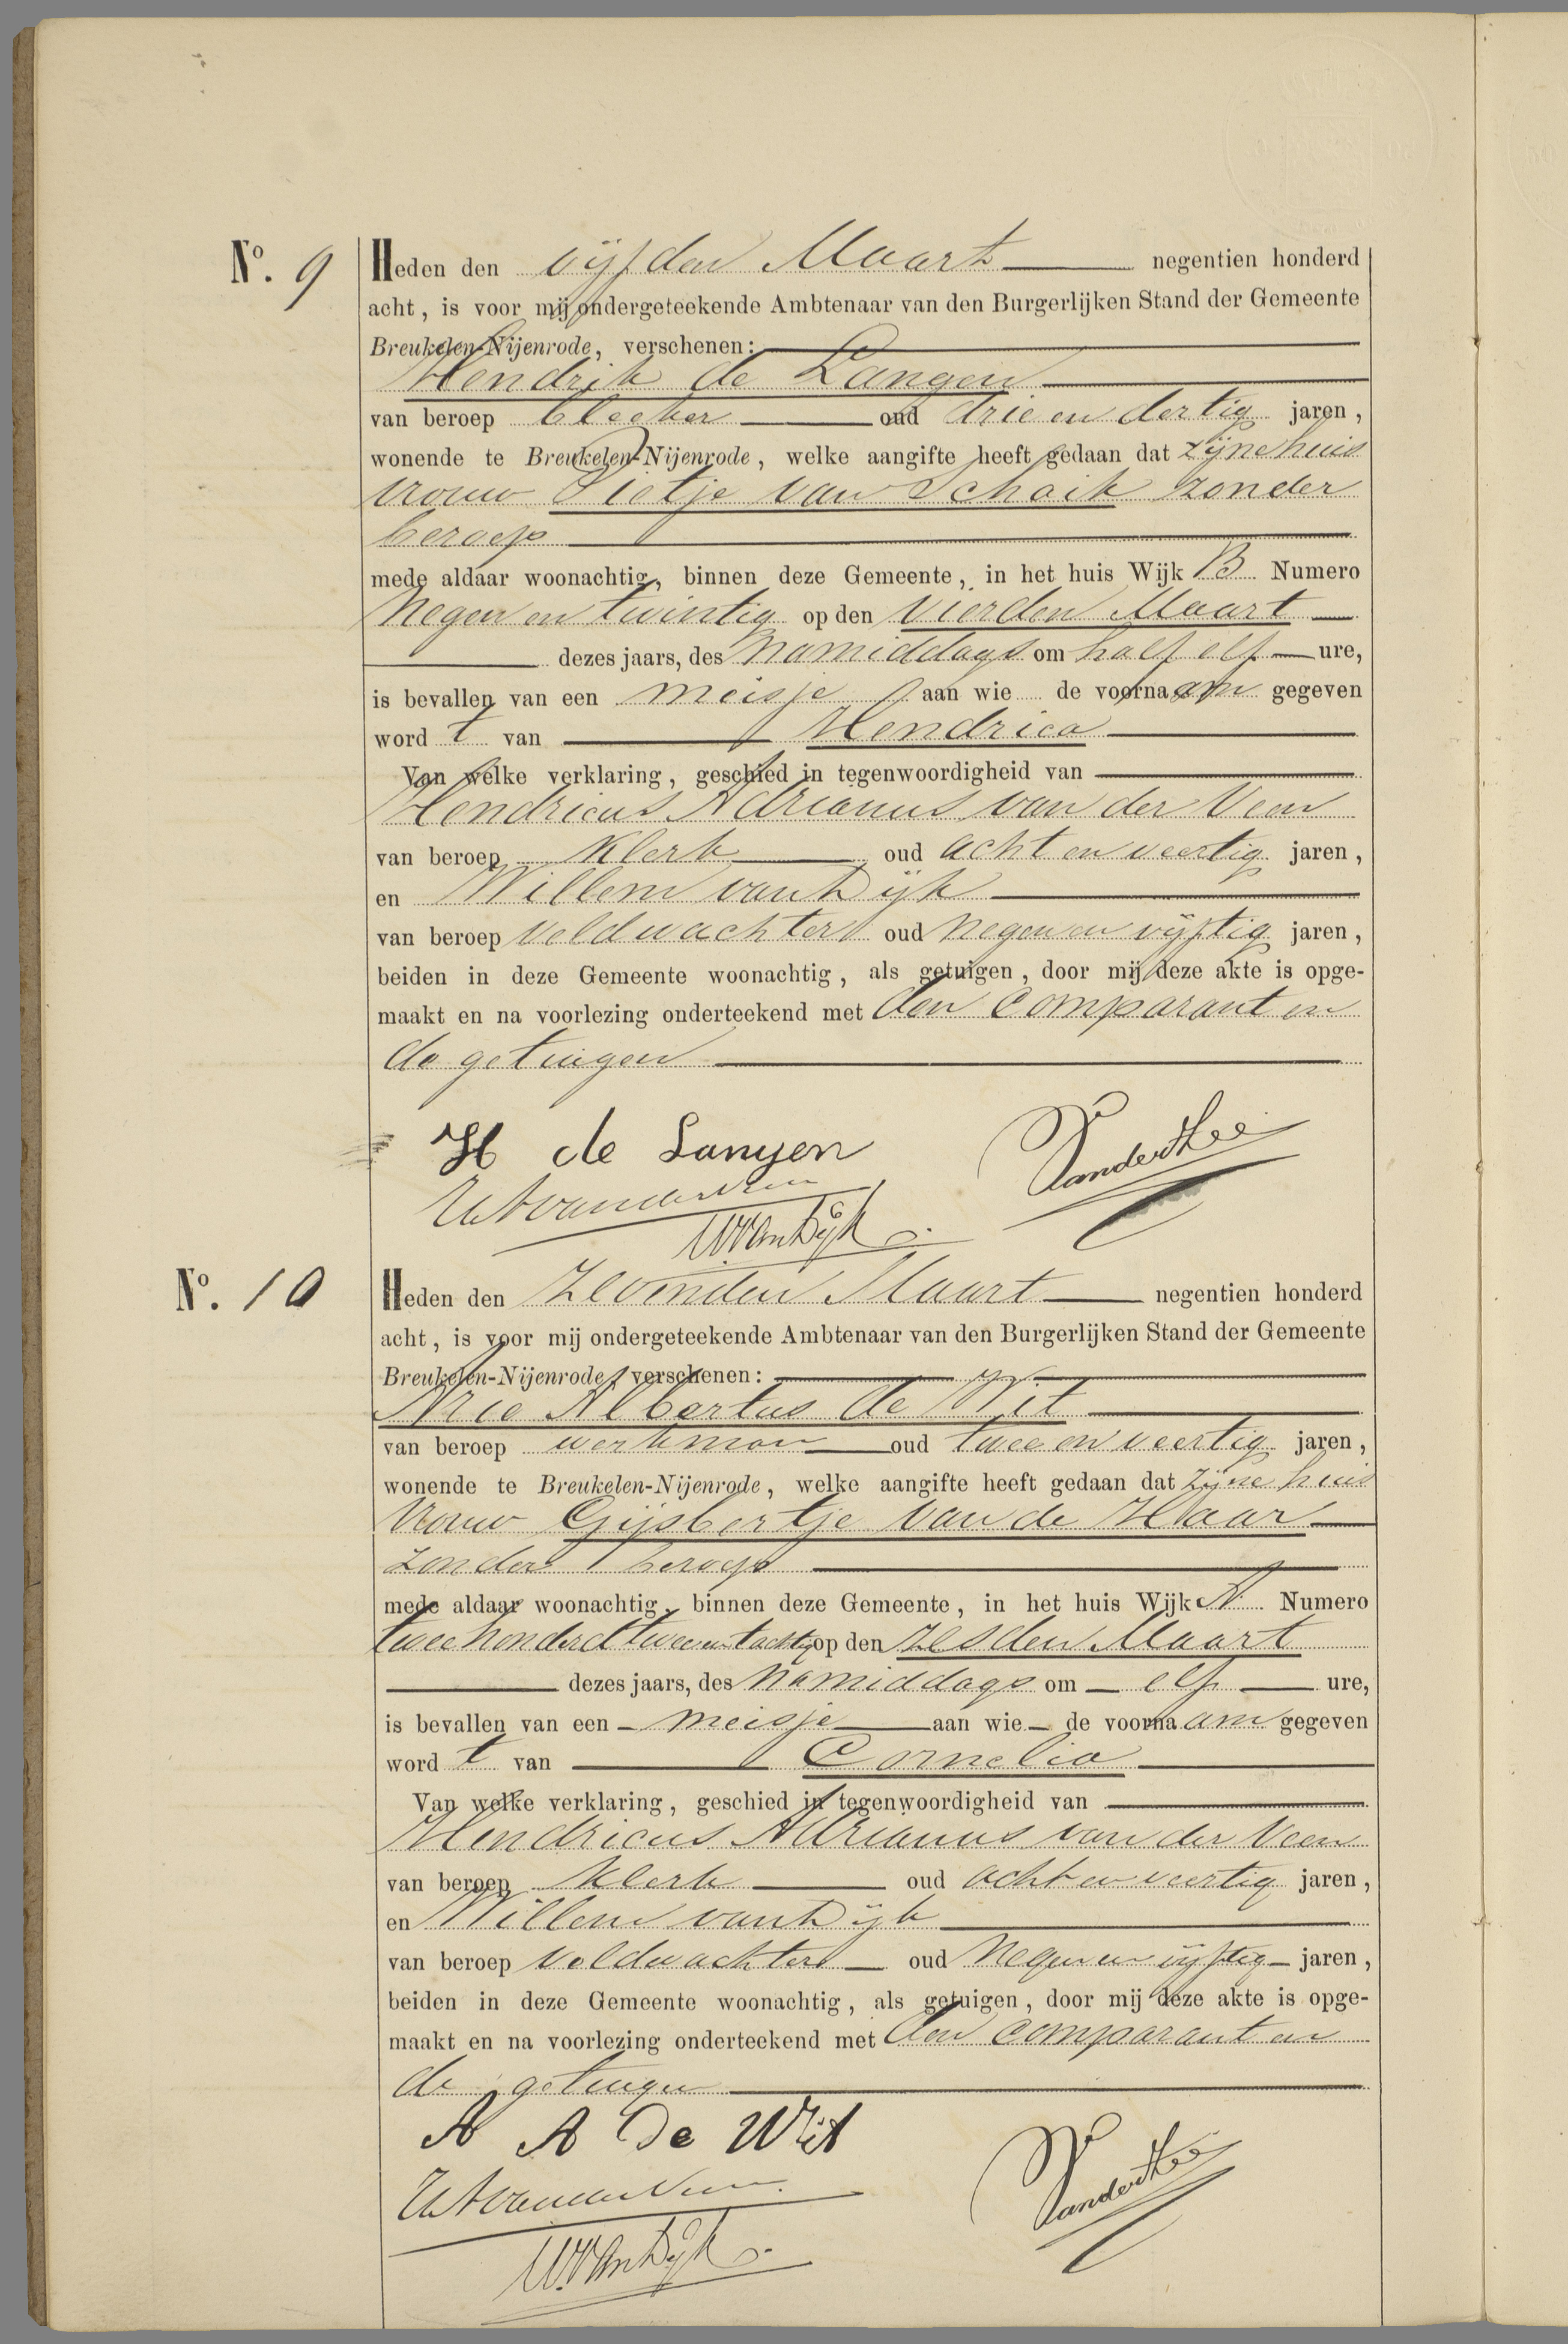 Nº. 9
Heden den vijfden Maart negentien honderd
acht, is voor mij ondergeteekende Ambtenaar van den Burgerlijken Stand der Gemeente
Breukelen-Nijenrode, verschenen:
Hendrik de Langen
van beroep bleeker oud drie en dertig jaren,
wonende te Breukelen-Nijenrode, welke aangifte heeft gedaan dat zijne huis
vrouw Pietje van Schaik zonder
beroep
mede aldaar woonachtig, binnen deze Gemeente, in het huis Wijk B Numero
negen en twintig op den vierden Maart
dezes jaars, des namiddags om half elf ure,
is bevallen van een meisje aan wie de voornaam gegeven
word t van Hendrica
Van welke verklaring, geschied in tegenwoordigheid van
Hendricus Adrianus van der Veen
van beroep klerk oud acht en veertig jaren,
en Willem van Dijk
van beroep veldwachter oud negen en vijftig jaren,
beiden in deze Gemeente woonachtig, als getuigen, door mij deze akte is opge-
maakt en na voorlezing onderteekend met den comparant en
de getuigen
H de Langen
HAvanderVeen
WvanDijk
Nº. 10
Heden den zevenden Maart negentien honderd
acht, is voor mij ondergeteekende Ambtenaar van den Burgerlijken Stand der Gemeente
Breukelen-Nijenrode, verschenen:
Arie Albertus de Wit
van beroep werkman oud twee en veertig jaren,
wonende te Breukelen-Nijenrode, welke aangifte heeft gedaan dat zijne huis
vrouw Gijsbertje van de Haar
zonder beroep
mede aldaar woonachtig, binnen deze Gemeente, in het huis Wijk A Numero
twee honderd twee en tachtig op den zesden Maart
dezes jaars, des namiddags om elf ure,
is bevallen van een meisje aan wie de voornaam gegeven
word t van Cornelia
Van welke verklaring, geschied in tegenwoordigheid van
Hendricus Adrianus van der Veen
van beroep klerk oud acht en veertig jaren,
en Willem van Dijk
van beroep veldwachter oud negen en vijftig jaren,
beiden in deze Gemeente woonachtig, als getuigen, door mij deze akte is opge-
maakt en na voorlezing onderteekend met den comparant en
de getuigen
A A De Wit
HAvanderVeen
WvanDijk